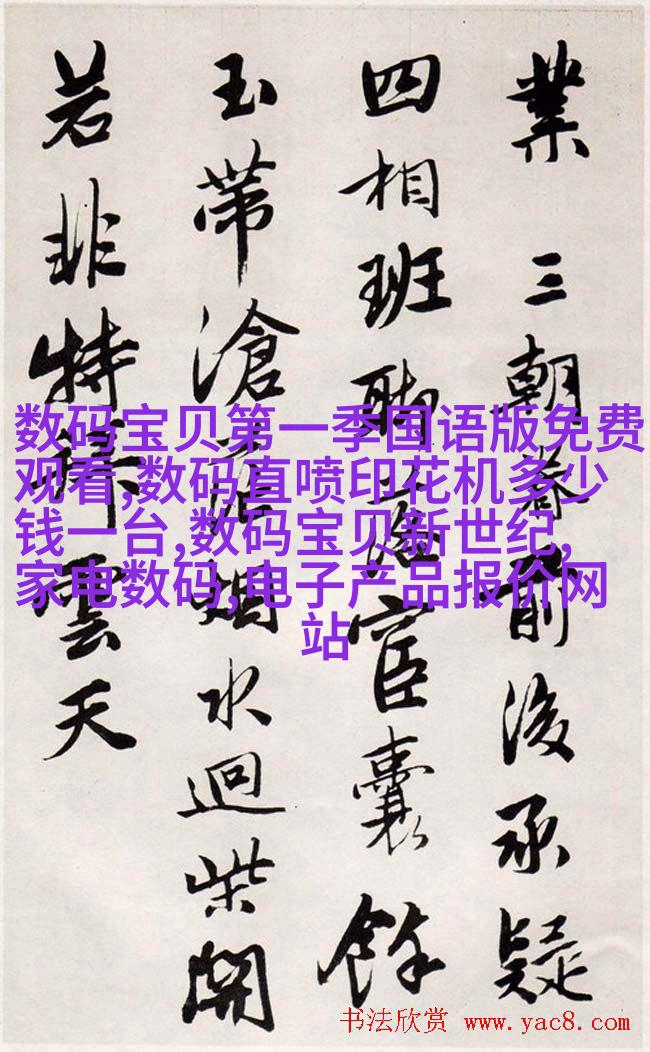 業 三朝前後承疑
四相班聯宦囊餘
玉帶滄水迴柴開
若非特雲天
数码宝贝第一季国语版免费
观看,数码直喷印花机多少
钱一台,数码宝贝新世纪,
家电数码,电子产品报价网
站
书法欣赏 www.yac8.com